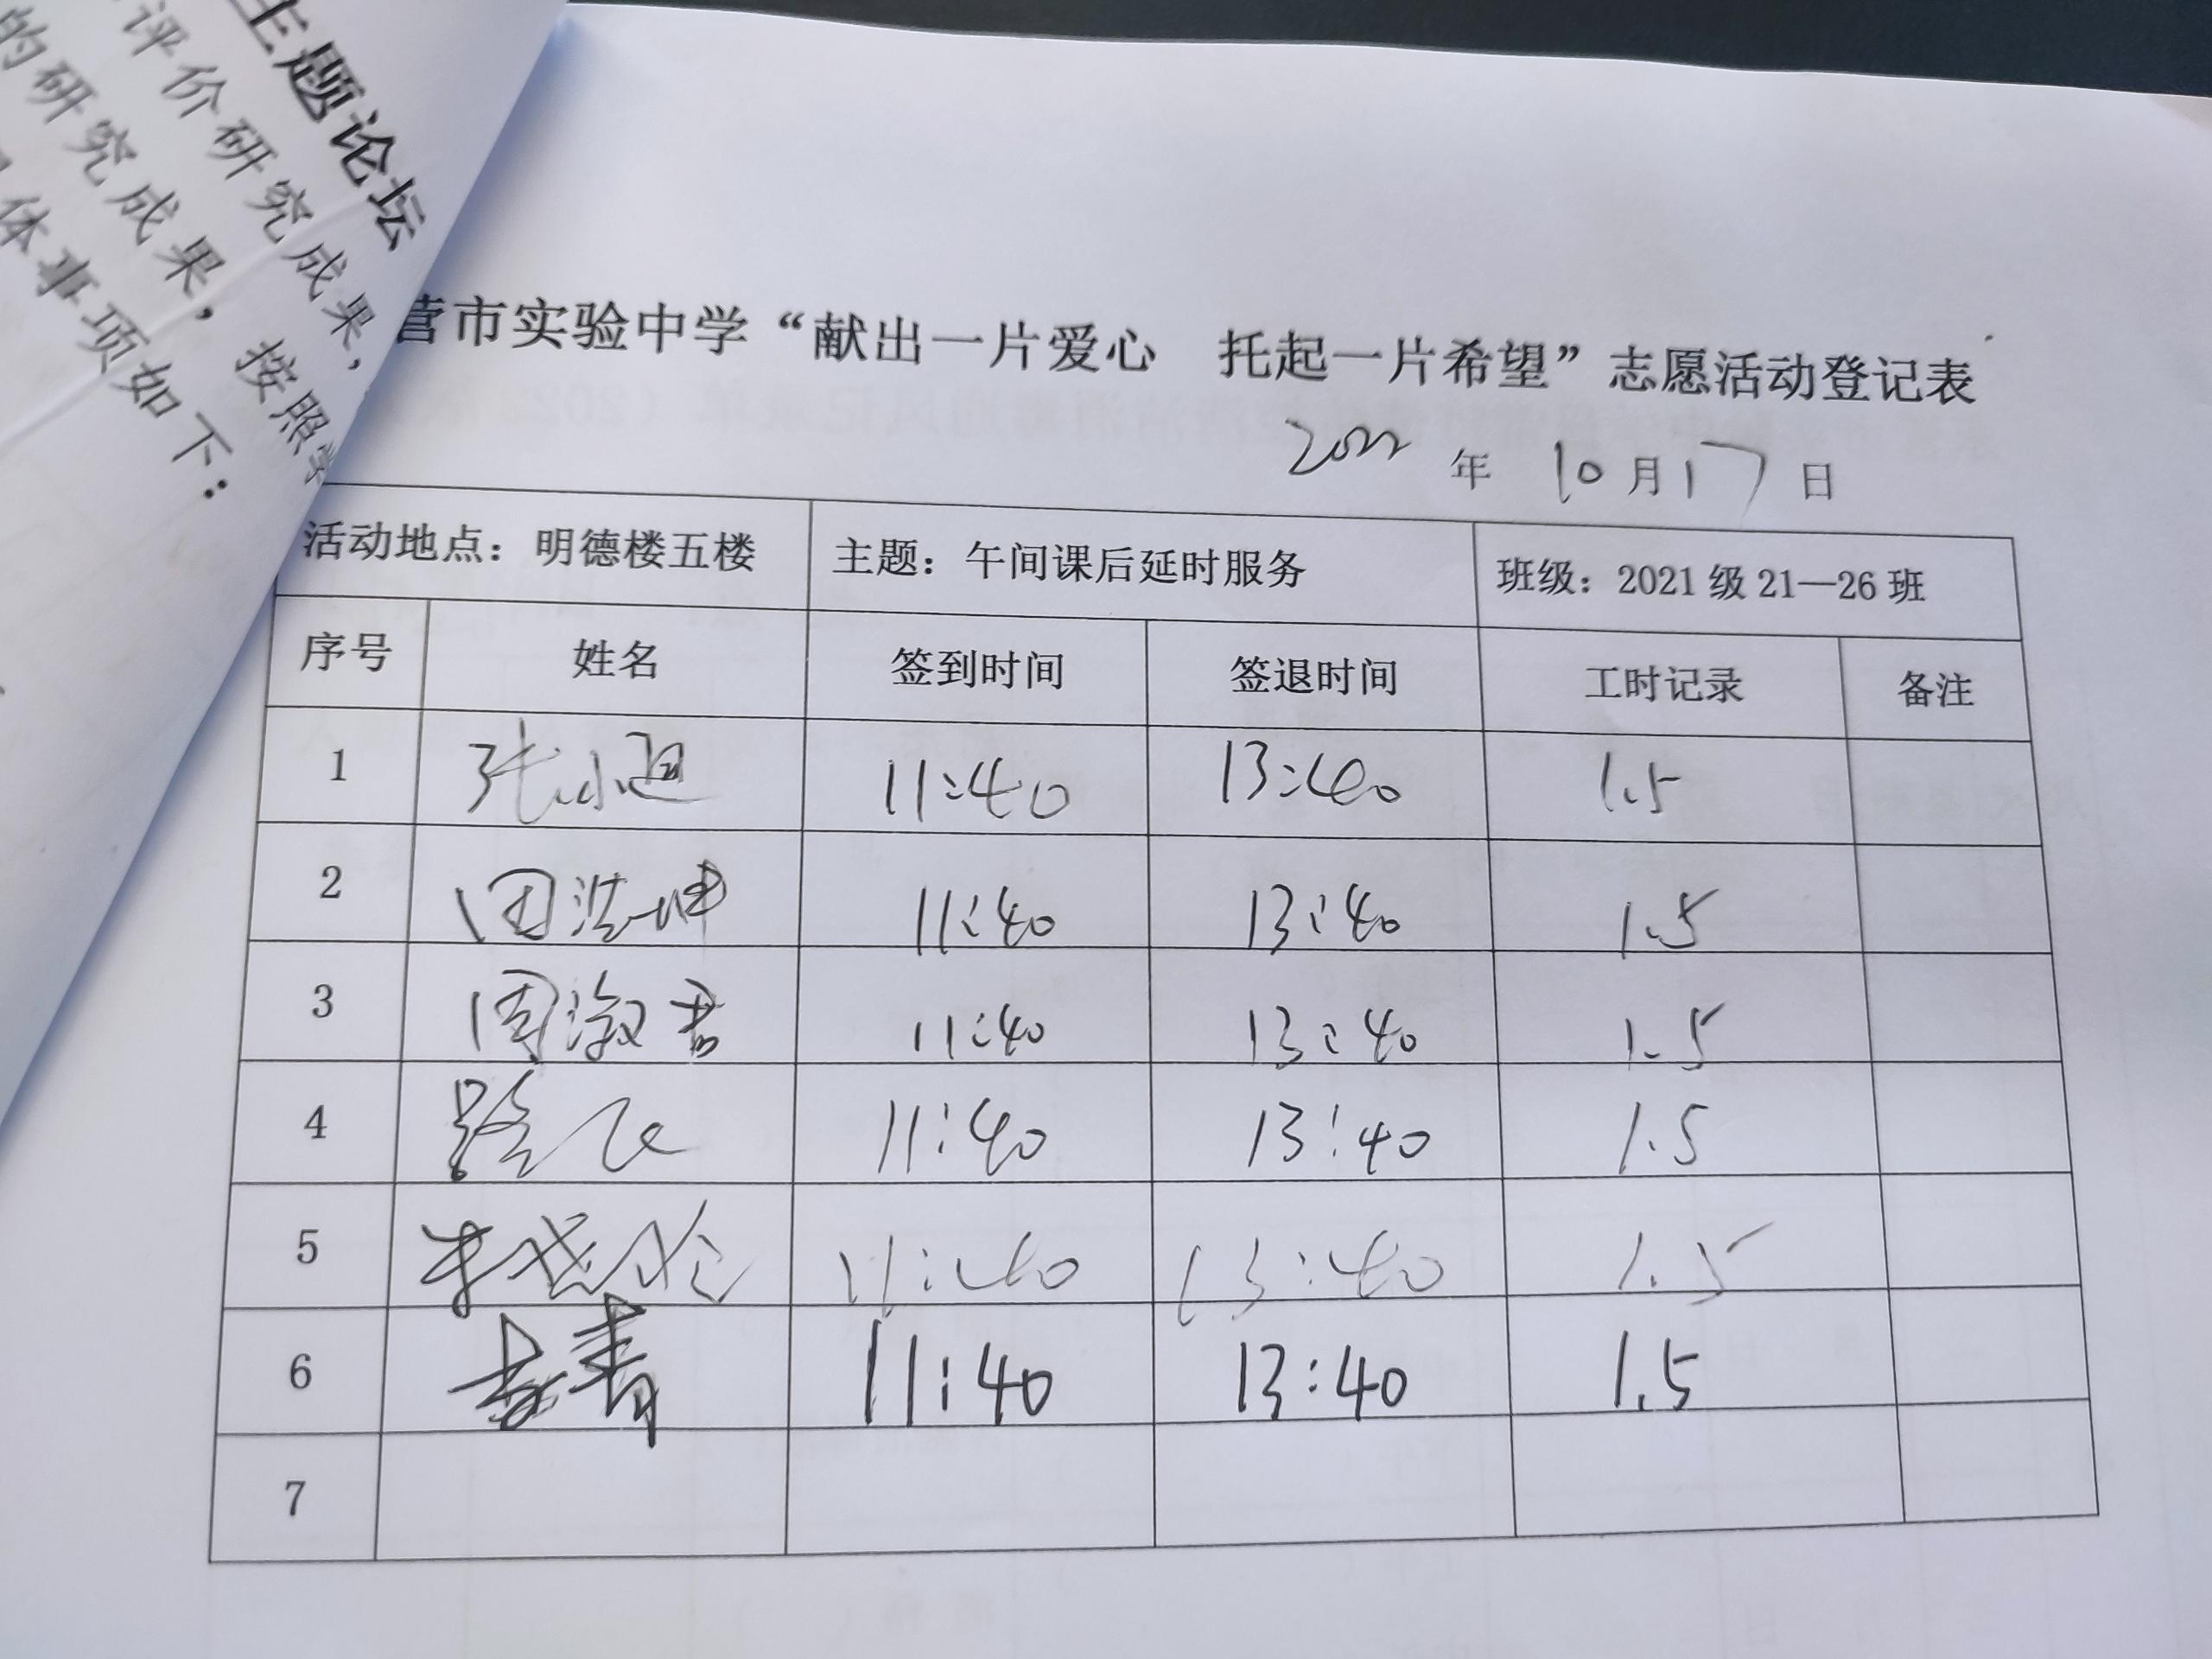 主题论坛
评价研究成果，
的研究成果，按照学
体事项如下：
营市实验中学“献出一片爱心 托起一片希望”志愿活动登记表
2022 年 10 月 17 日
活动地点：明德楼五楼 主题：午间课后延时服务 班级：2021 级 21—26 班
序号 姓名 签到时间 签退时间 工时记录 备注
1 张小迴 11:40 13:40 1.5
2 田浩坤 11:40 13:40 1.5
3 周淑君 11:40 13:40 1.5
4 11:40 13:40 1.5
5 11:40 13:40 1.5
6 李青 11:40 13:40 1.5
7